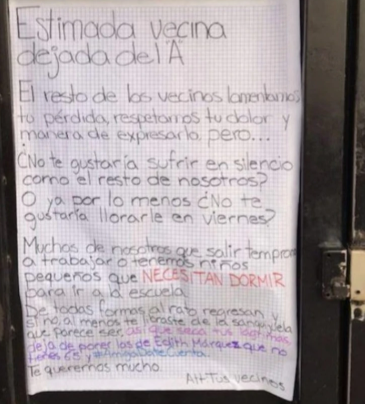 Estimada vecina
dejada del "A"
El resto de los vecinos lamentamos
tu pérdida, respetamos tu dolor y
manera de expresarlo, pero...
¿No te gustaría sufrir en silencio
como el resto de nosotros?
O ya por lo menos ¿No te
gustaría llorarle en viernes?
Muchos de nosotros que salir temprano
a trabajar o tenemos niños
pequeños que NECESITAN DORMIR
para ir a la escuela
De todas formas al rato regresan y
si no, al menos te libraste de la sanguijuela
que parece ser, así que seca tus lágrimas,
deja de poner las de Edith Márquez que no
tienes 65 y #AmigaDateCuenta.
Te queremos mucho.
Att Tus vecinos